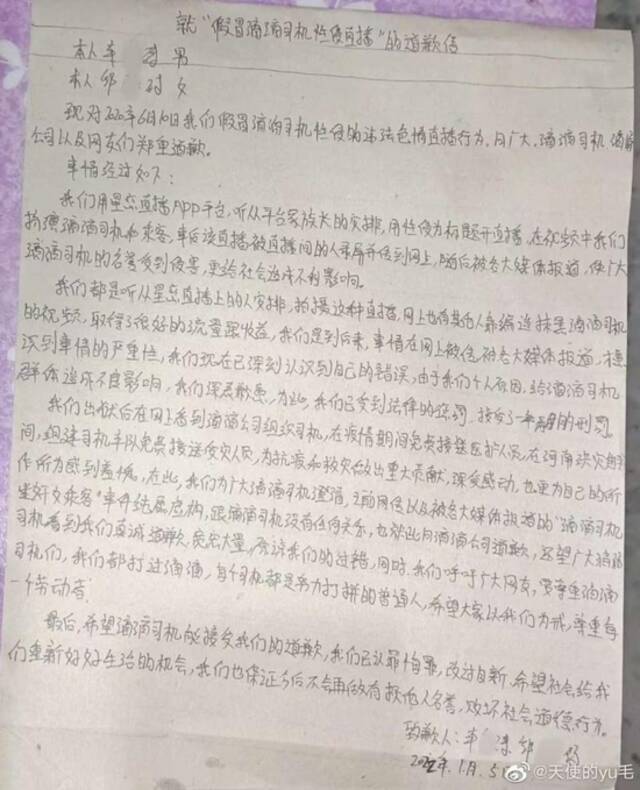 就“假冒滴滴司机性侵直播”的道歉信
本人 男
本人 女
现对2020年6月10日我们假冒滴滴司机性侵的违法色情直播行为,向广大滴滴司机 滴滴
公司以及网友们郑重道歉。
事情经过如下:
我们用星恋直播APP平台,听从平台家族长的安排,用性侵为标题开直播,在视频中我们
扮演滴滴司机和乘客,事后该直播被直播间的人录屏并传到网上,随后被各大媒体报道,使广大
滴滴司机的名誉受到侵害,更给社会造成不利影响。
我们都是听从星恋直播上的人安排,拍摄这种直播,网上也有其他人靠编造抹黑滴滴司机
的视频,取得了很好的流量跟收益,我们是到后来,事情在网上被传,被各大媒体报道,才意
识到事情的严重性,我们现在已深刻认识到自己的错误,由于我们个人原因,给滴滴司机
群体造成不良影响,我们深表歉意,为此,我们已受到法律的惩罚,接受了一年 的刑罚。
我们出狱后在网上看到滴滴公司组织司机,在疫情期间免费接送医护人员,在河南洪灾期
间,组建司机车队免费接送受灾人员,为抗疫和救灾做出重大贡献,深受感动,也更为自己的所
作所为感到羞愧。在此,我们为广大滴滴司机澄清,之前网传以及被各大媒体报道的“滴滴司机
迷奸女乘客”事件纯属虚构,跟滴滴司机没有任何关系,也就此向滴滴公司道歉,还望广大滴滴
司机看到我们真诚道歉,宽宏大量,原谅我们的过错,同时,我们呼吁广大网友,要尊重滴滴
司机们,我们都打过滴滴,每个司机都是努力打拼的普通人,希望大家以我们为戒,尊重每
一个劳动者。
最后,希望滴滴司机能接受我们的道歉,我们已认罪悔罪,改过自新,希望社会给我
们重新好好生活的机会,我们也保证今后不会再做有损他人名誉,败坏社会道德行为。
致歉人:
2022年1月5
@天使的yu毛